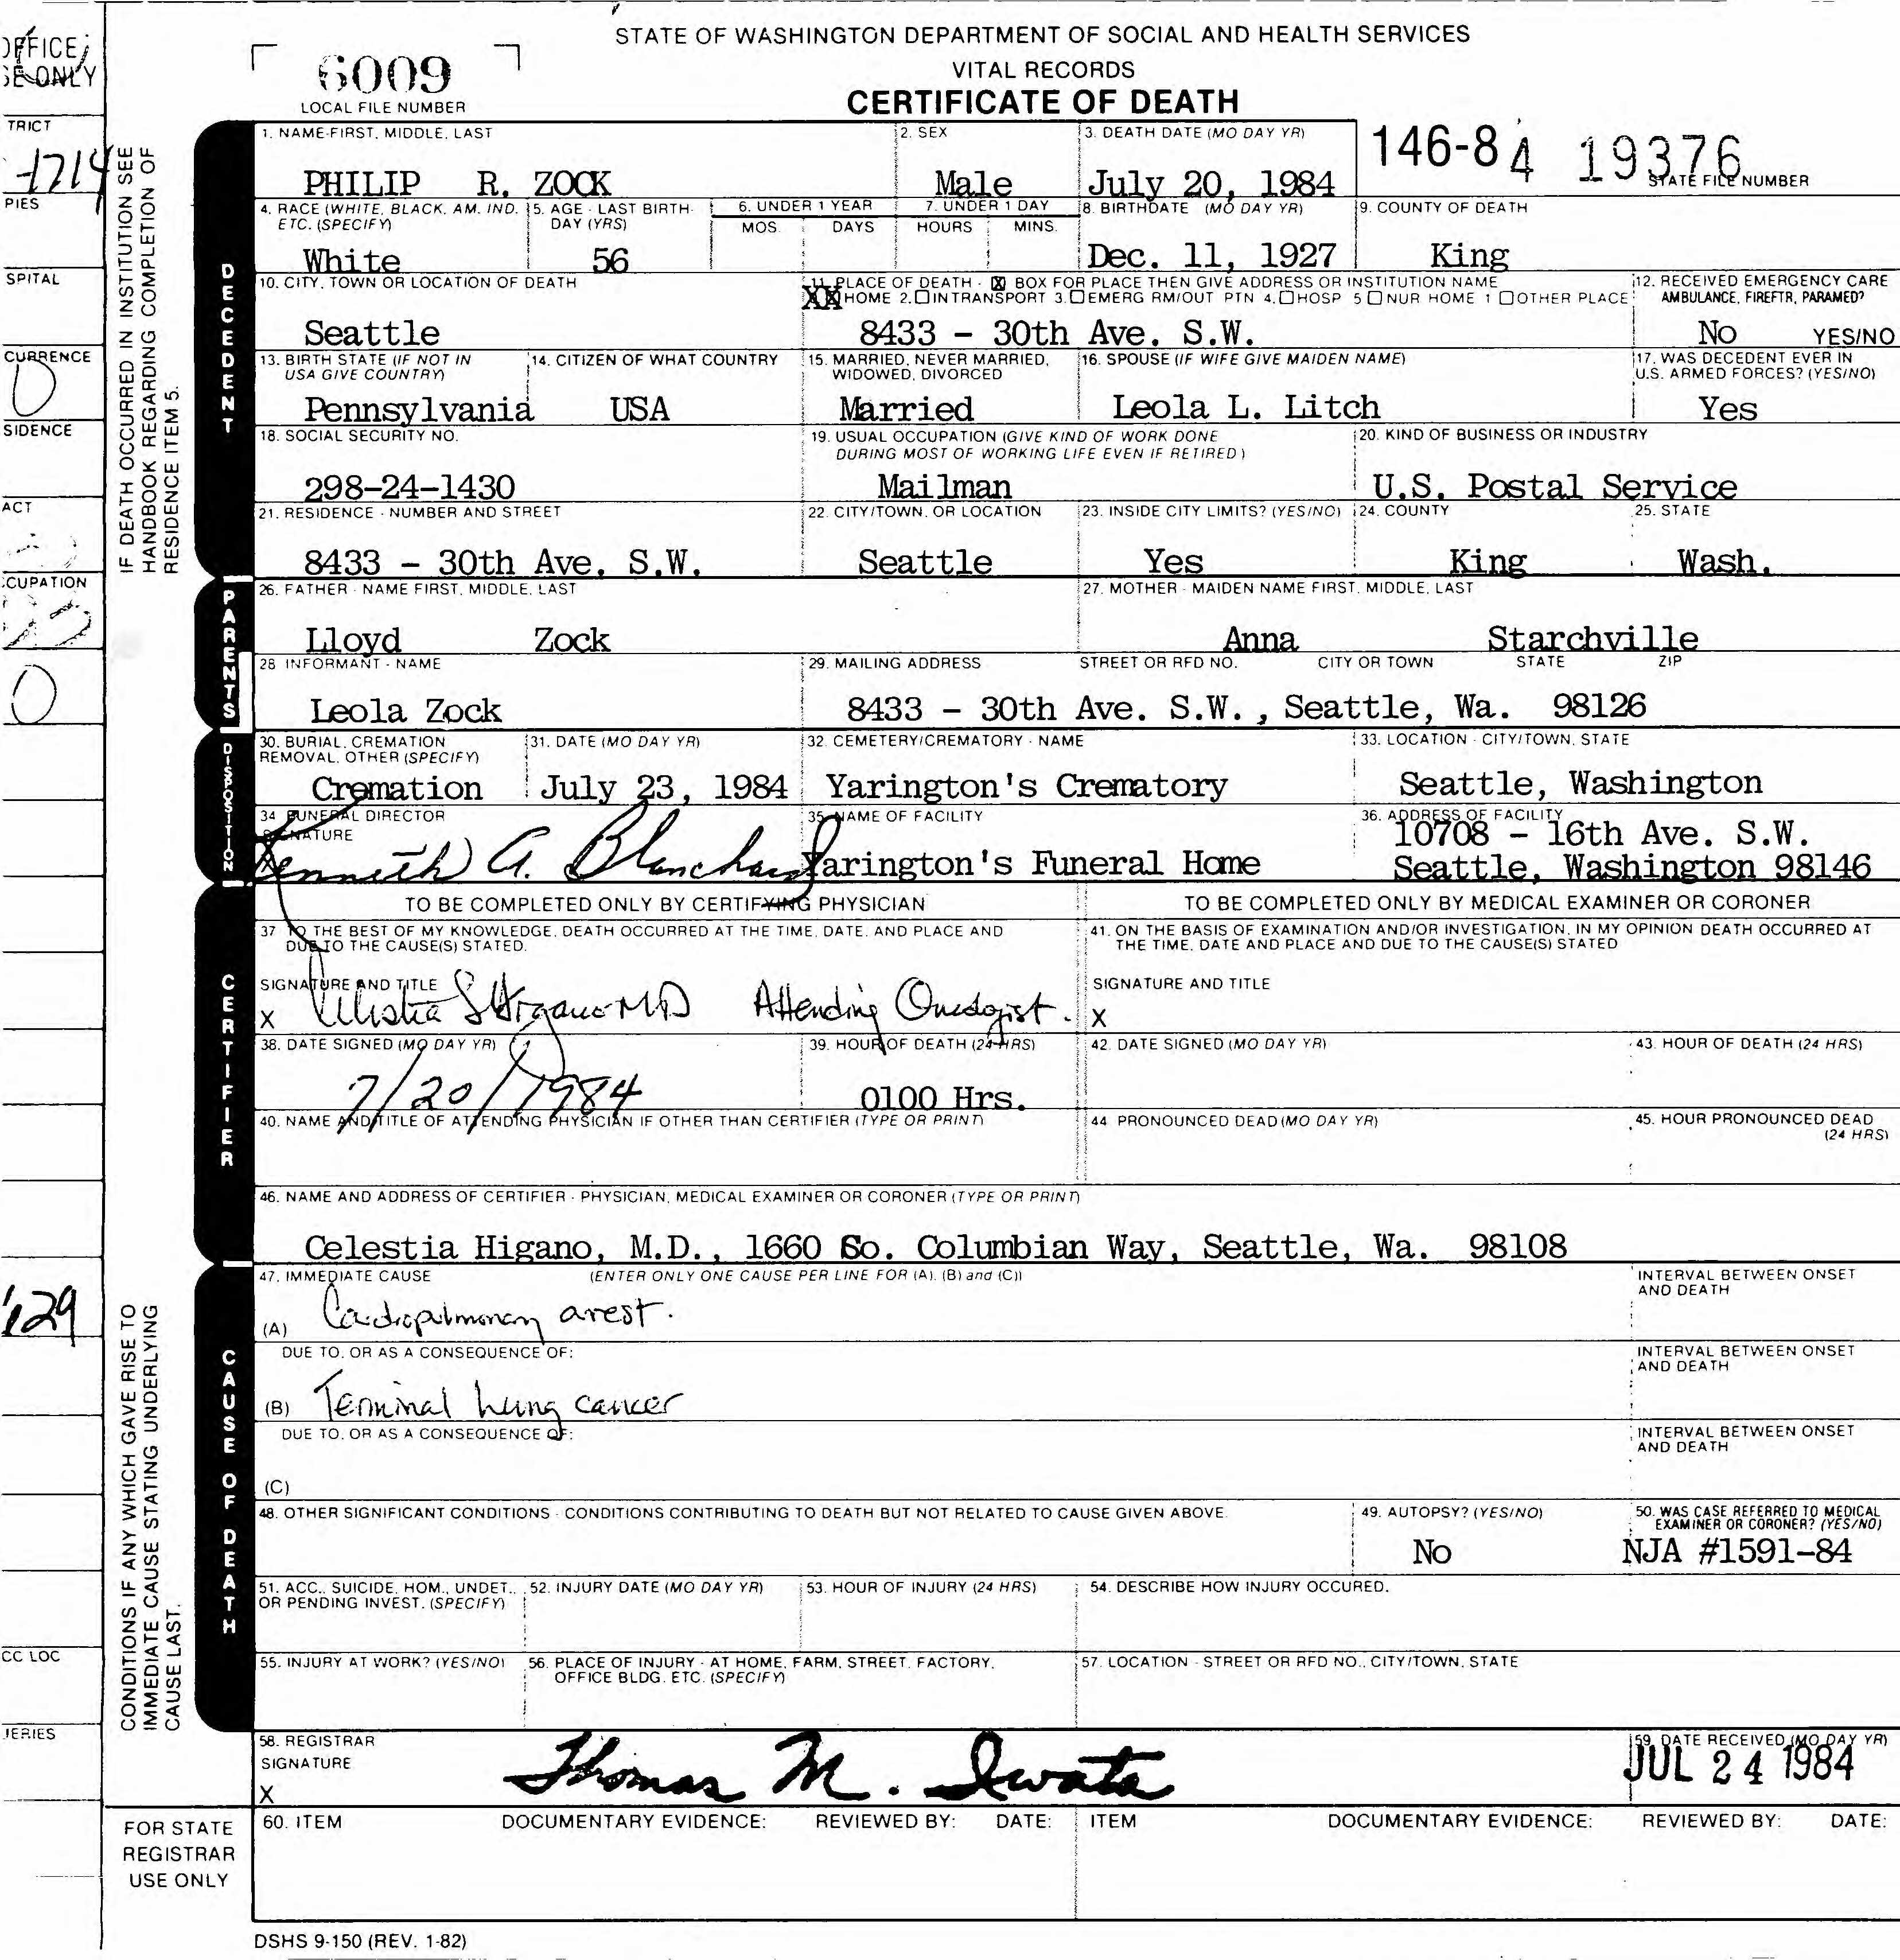 STATE OF WASHINGTON DEPARTMENT OF SOCIAL AND HEALTH SERVICES
VITAL RECORDS
CERTIFICATE OF DEATH
OFFICE
USE ONLY
6009
LOCAL FILE NUMBER
146-84 19376
STATE FILE NUMBER
TRICT
1714
PIES
SPITAL
CURRENCE
SIDENCE
ACT
CCUPATION
IF DEATH OCCURRED IN INSTITUTION SEE
HANDBOOK REGARDING COMPLETION OF
RESIDENCE ITEM 5.
DECEDENT
1. NAME-FIRST, MIDDLE, LAST
PHILIP R. ZOCK
2. SEX
Male
3. DEATH DATE (MO DAY YR)
July 20, 1984
4. RACE (WHITE, BLACK, AM. IND.
ETC. (SPECIFY)
White
5. AGE - LAST BIRTH-
DAY (YRS)
56
6. UNDER 1 YEAR
MOS. DAYS
7. UNDER 1 DAY
HOURS MINS.
8. BIRTHDATE (MO DAY YR)
Dec. 11, 1927
9. COUNTY OF DEATH
King
10. CITY, TOWN OR LOCATION OF DEATH
Seattle
11. PLACE OF DEATH - X BOX FOR PLACE THEN GIVE ADDRESS OR INSTITUTION NAME
XX HOME 2. INTRANSPORT 3. EMERG RM/OUT PTN 4. HOSP 5 NUR HOME 1 OTHER PLACE
8433 - 30th Ave. S.W.
12. RECEIVED EMERGENCY CARE
AMBULANCE, FIREFTR, PARAMED?
No YES/NO
13. BIRTH STATE (IF NOT IN
USA GIVE COUNTRY)
Pennsylvania
14. CITIZEN OF WHAT COUNTRY
USA
15. MARRIED, NEVER MARRIED,
WIDOWED, DIVORCED
Married
16. SPOUSE (IF WIFE GIVE MAIDEN NAME)
Leola L. Litch
17. WAS DECEDENT EVER IN
U.S. ARMED FORCES? (YES/NO)
Yes
18. SOCIAL SECURITY NO.
298-24-1430
19. USUAL OCCUPATION (GIVE KIND OF WORK DONE
DURING MOST OF WORKING LIFE EVEN IF RETIRED)
Mailman
20. KIND OF BUSINESS OR INDUSTRY
U.S. Postal Service
21. RESIDENCE - NUMBER AND STREET
8433 - 30th Ave. S.W.
22. CITY/TOWN, OR LOCATION
Seattle
23. INSIDE CITY LIMITS? (YES/NO)
Yes
24. COUNTY
King
25. STATE
Wash.
PARENTS
26. FATHER - NAME FIRST, MIDDLE, LAST
Lloyd Zock
27. MOTHER - MAIDEN NAME FIRST, MIDDLE, LAST
Anna Starchville
28 INFORMANT - NAME
Leola Zock
29. MAILING ADDRESS STREET OR RFD NO. CITY OR TOWN STATE ZIP
8433 - 30th Ave. S.W., Seattle, Wa. 98126
DISPOSITION
30. BURIAL, CREMATION
REMOVAL, OTHER (SPECIFY)
Cremation
31. DATE (MO DAY YR)
July 23, 1984
32. CEMETERY/CREMATORY - NAME
Yarington's Crematory
33. LOCATION - CITY/TOWN, STATE
Seattle, Washington
34 FUNERAL DIRECTOR
SIGNATURE
Kenneth A. Blanchard
35. NAME OF FACILITY
Yarington's Funeral Home
36. ADDRESS OF FACILITY
10708 - 16th Ave. S.W.
Seattle, Washington 98146
CERTIFIER
TO BE COMPLETED ONLY BY CERTIFYING PHYSICIAN
37 TO THE BEST OF MY KNOWLEDGE, DEATH OCCURRED AT THE TIME, DATE, AND PLACE AND
DUE TO THE CAUSE(S) STATED.
SIGNATURE AND TITLE
X Celestia S Higano MD Attending Oncologist.
38. DATE SIGNED (MO DAY YR)
7/20/1984
39. HOUR OF DEATH (24 HRS)
0100 Hrs.
40. NAME AND TITLE OF ATTENDING PHYSICIAN IF OTHER THAN CERTIFIER (TYPE OR PRINT)
TO BE COMPLETED ONLY BY MEDICAL EXAMINER OR CORONER
41. ON THE BASIS OF EXAMINATION AND/OR INVESTIGATION, IN MY OPINION DEATH OCCURRED AT
THE TIME, DATE AND PLACE AND DUE TO THE CAUSE(S) STATED
SIGNATURE AND TITLE
X
42. DATE SIGNED (MO DAY YR)
43. HOUR OF DEATH (24 HRS)
44 PRONOUNCED DEAD (MO DAY YR)
45. HOUR PRONOUNCED DEAD
(24 HRS)
46. NAME AND ADDRESS OF CERTIFIER - PHYSICIAN, MEDICAL EXAMINER OR CORONER (TYPE OR PRINT)
Celestia Higano, M.D., 1660 So. Columbian Way, Seattle, Wa. 98108
CONDITIONS IF ANY WHICH GAVE RISE TO
IMMEDIATE CAUSE STATING UNDERLYING
CAUSE LAST.
CAUSE OF DEATH
47. IMMEDIATE CAUSE (ENTER ONLY ONE CAUSE PER LINE FOR (A), (B) and (C))
(A) Cardiopulmonary arest.
INTERVAL BETWEEN ONSET
AND DEATH
DUE TO, OR AS A CONSEQUENCE OF:
(B) Terminal lung cancer
INTERVAL BETWEEN ONSET
AND DEATH
DUE TO, OR AS A CONSEQUENCE OF:
(C)
INTERVAL BETWEEN ONSET
AND DEATH
48. OTHER SIGNIFICANT CONDITIONS - CONDITIONS CONTRIBUTING TO DEATH BUT NOT RELATED TO CAUSE GIVEN ABOVE.
49. AUTOPSY? (YES/NO)
No
50. WAS CASE REFERRED TO MEDICAL
EXAMINER OR CORONER? (YES/NO)
NJA #1591-84
51. ACC., SUICIDE, HOM., UNDET.,
OR PENDING INVEST. (SPECIFY)
52. INJURY DATE (MO DAY YR)
53. HOUR OF INJURY (24 HRS)
54. DESCRIBE HOW INJURY OCCURED.
55. INJURY AT WORK? (YES/NO)
56. PLACE OF INJURY - AT HOME, FARM, STREET, FACTORY,
OFFICE BLDG. ETC. (SPECIFY)
57. LOCATION - STREET OR RFD NO., CITY/TOWN, STATE
CC LOC
58. REGISTRAR
SIGNATURE
X Thomas M. Iwata
59. DATE RECEIVED (MO DAY YR)
JUL 24 1984
FOR STATE
REGISTRAR
USE ONLY
60. ITEM DOCUMENTARY EVIDENCE: REVIEWED BY: DATE:
ITEM DOCUMENTARY EVIDENCE: REVIEWED BY: DATE:
DSHS 9-150 (REV. 1-82)